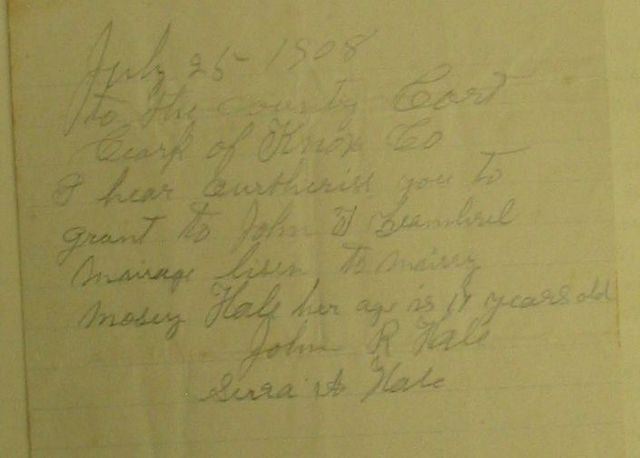 July 25 1908
to the county Cort
Clark of Knox Co
I hear you to
grant to John T
Mairage lisen to mairy
Mosey Hale her age is years old
John R Hale
A Hale